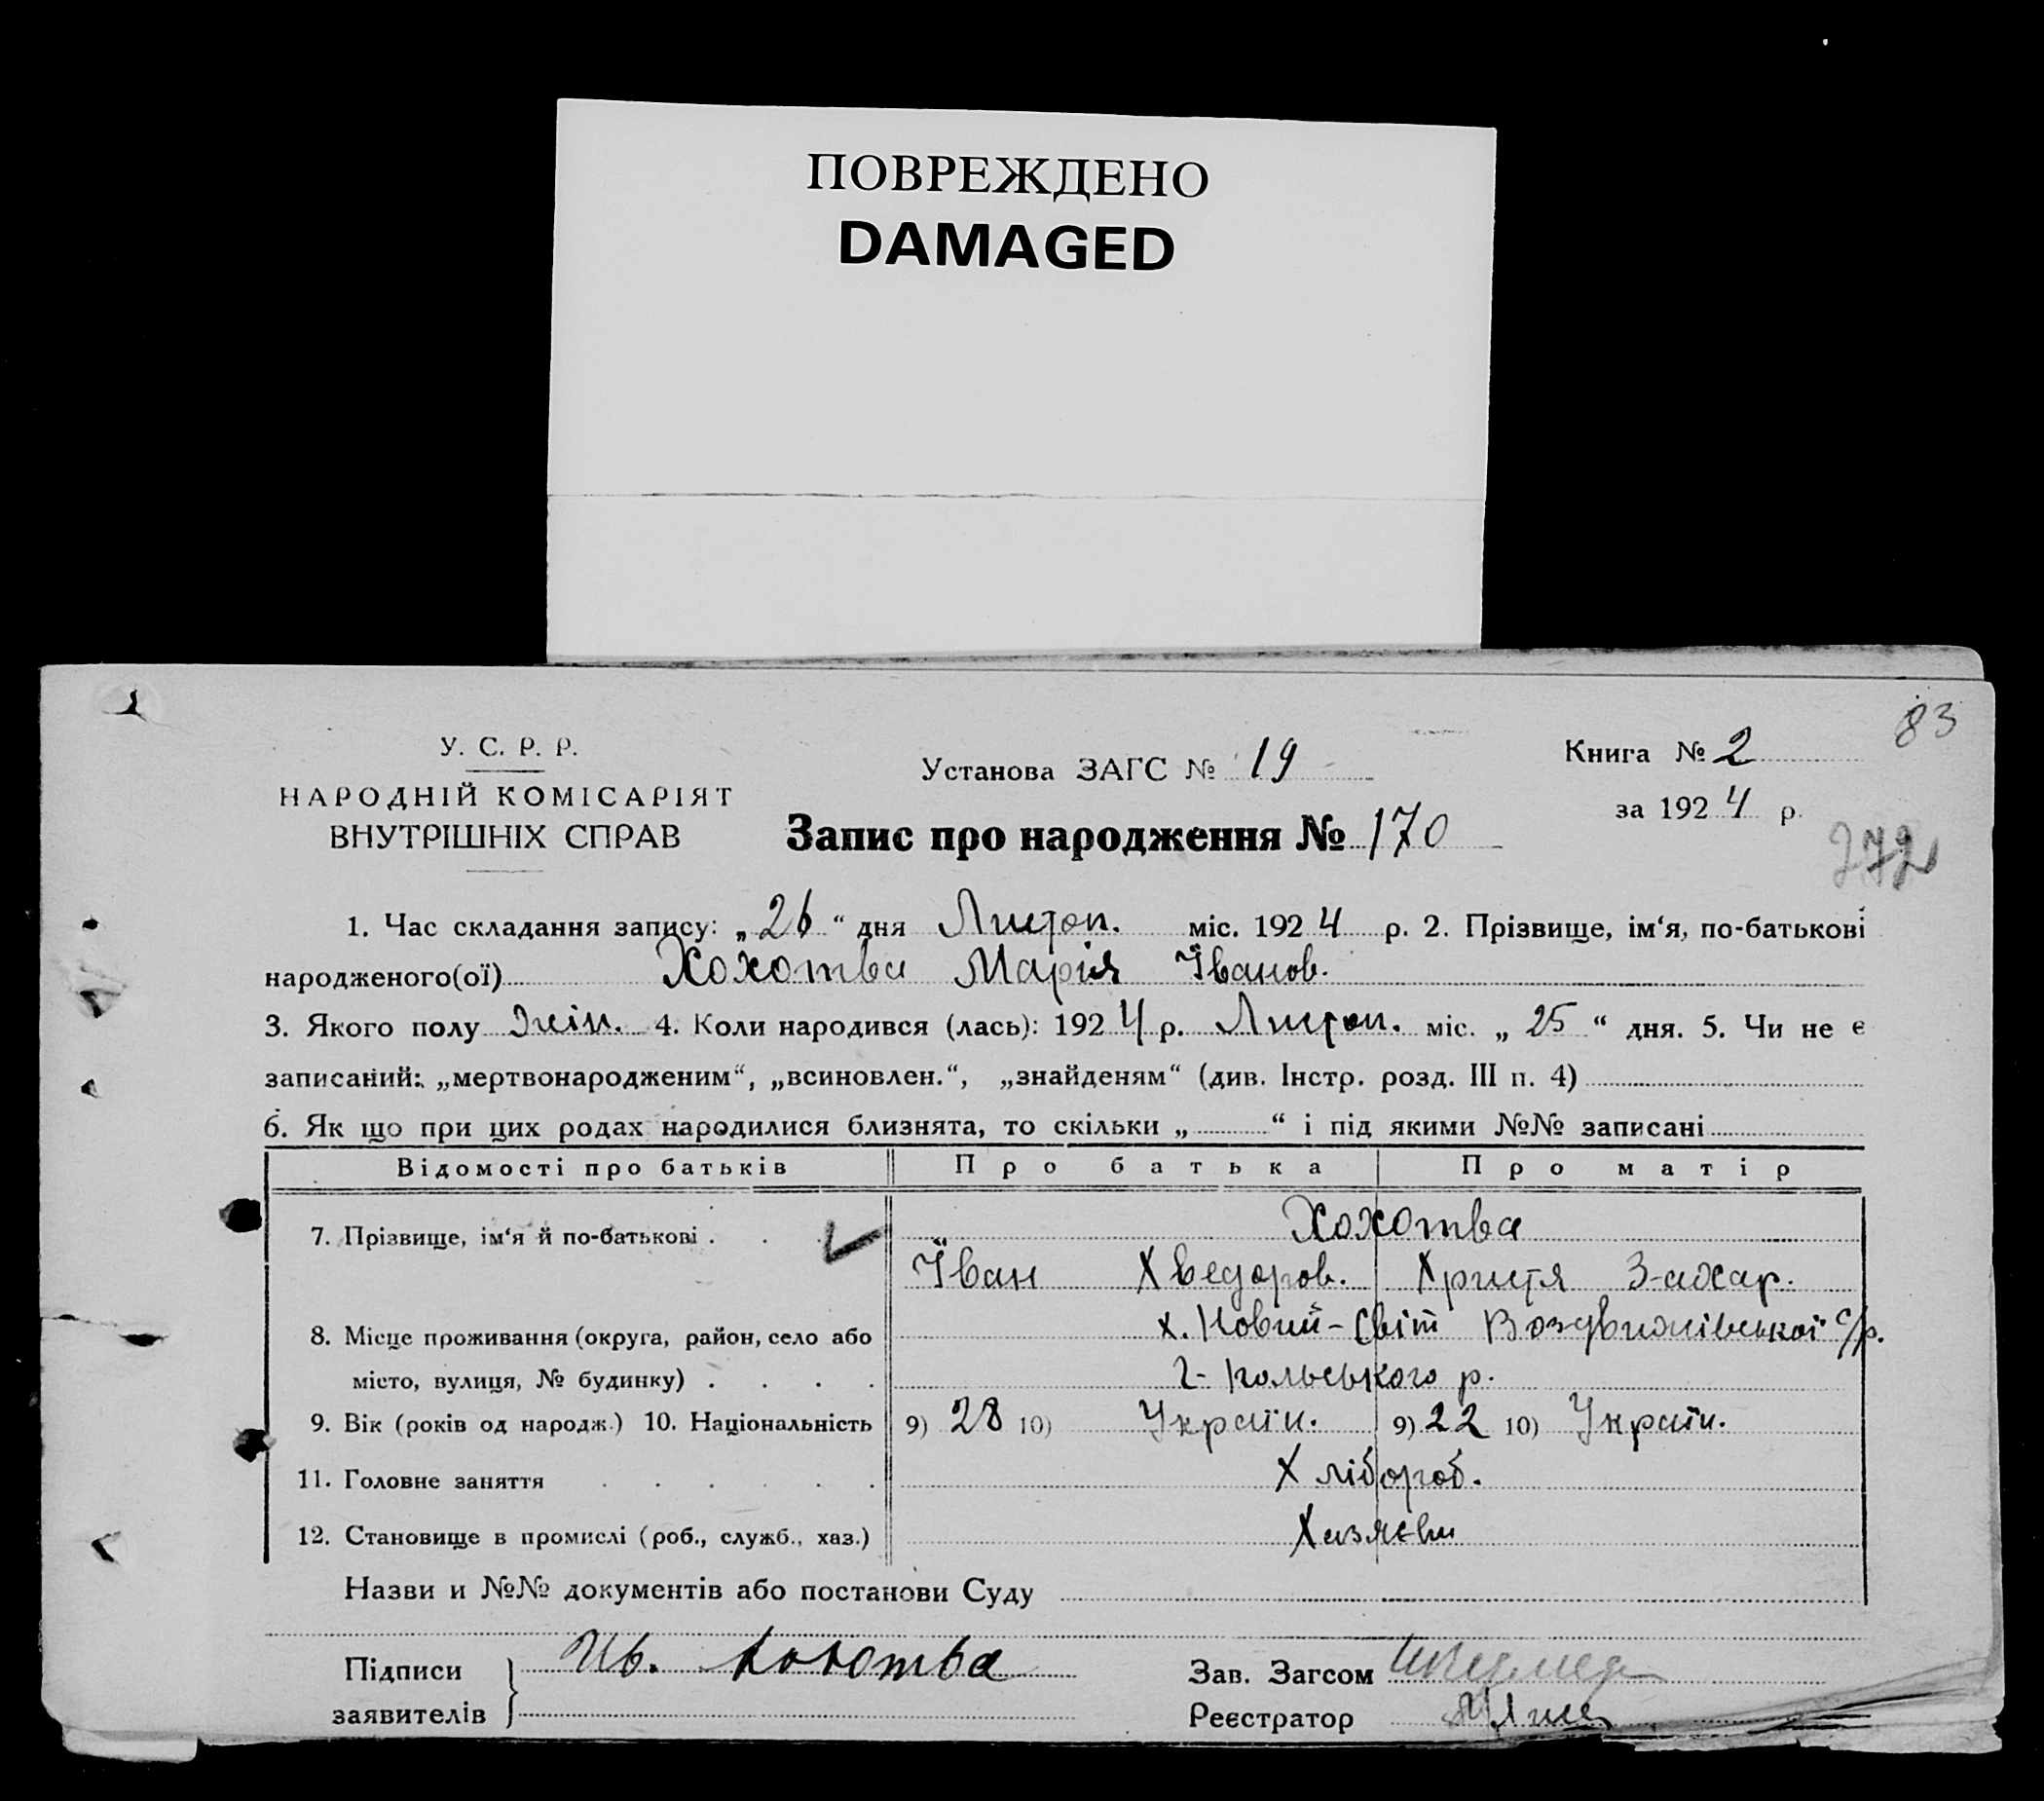 ПОВРЕЖДЕНО
DAMAGED
83
У. С. Р. Р.
НАРОДНІЙ КОМІСАРІЯТ
ВНУТРІШНІХ СПРАВ
Установа ЗАГС № 19
Книга № 2
за 1924 р.
Запис про народження № 170
272
1. Час складання запису: „26“ дня Листоп. міс. 1924 р. 2. Прізвище, ім‘я, по-батькові
народженого(ої) Хохотва Марія Іванов.
3. Якого полу жін. 4. Коли народився (лась): 1924 р. Листоп. міс. „25“ дня. 5. Чи не є
записаний: „мертвонародженим“, „всиновлен.“, „знайденям“ (див. Інстр. розд. III п. 4)
6. Як що при цих родах народилися близнята, то скільки „ “ і під якими №№ записані
Відомості про батьків Про батька Про матір
7. Прізвище, ім‘я й по-батькові . . Хохотва
Іван Хведоров. Христя Захар.
8. Місце проживання (округа, район, село або х. Новий-Світ Воздвижівської с/р.
місто, вулиця, № будинку) . . . . Г-Польського р.
9. Вік (років од народж.) 10. Національність 9) 28 10) Україн. 9) 22 10) Україн.
11. Головне заняття . . . . . . Хлібороб.
12. Становище в промислі (роб., служб., хаз.) Хазяєви
Назви и №№ документів або постанови Суду
Підписи Ив. Хохотва Зав. Загсом
заявителів Реєстратор